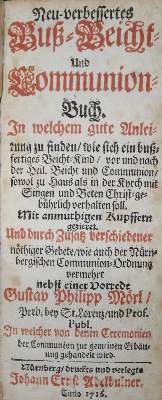 Neu-verbessertes
Buß-Beicht-
Und
Communion-
Buch.
In welchem gute Anlei-
tung zu finden/ wie sich ein buß-
fertiges Beicht-Kind/ vor und nach
der Heil. Beicht und Communion/
sowol zu Haus als in der Kirch mit
Singen und Beten Christ-ge-
bührlich verhalten soll.
Mit anmuthigen Kupffern
gezieret,
Und durch Zusatz verschiedener
nöthiger Gebete/ wie auch der Nürn-
bergischen Communion-Ordnung
vermehrt
nebst einer Vorrede
Gustav Philipp Mörl/
Pred. bey St. Lorenz/ und Prof.
Publ.
In welcher von denen Ceremonien
der Communion zur gemeinen Erbau-
ung gehandelt wird.
Nürnberg/ druckts und verlegts
Johann Ernst Adelbulner.
Anno 1716.